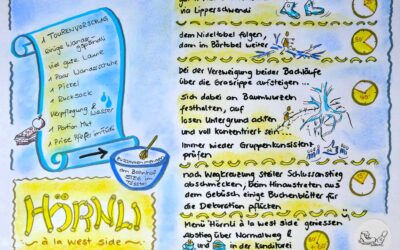 1 TOURENVORSCHLAG
einige Wander
gspändli
viel gute Laune
1 Paar Wanderschuhe
1 Pickel
1 Rucksack
Verpflegung & Wasser
1 Portion Mut
1 Prise Pfeffer im Füdli
zusammen mengen
am Bahnhof
STEG im
Tösstal
HÖRNLI
- à la west side -
via Lipperschwendi
dem Nideltobel folgen,
dann im Bärtobel weiter
bei der Verzweigung beider Bachläufe
über die Grasrippe aufsteigen...
Sich dabei an Baumwurzeln
festhalten, auf
losen Untergrund achten
und voll konzentriert sein...
Immer wieder Gruppenkonsistenz
prüfen
nach Wegkreuzung steiler Schlussanstieg
abschmecken, beim Hinaustreten aus
dem Gebüsch einige Buchenblätter für
die Dekoration pflücken
Menü Hörnli à la west side geniessen
Abstieg über Normalweg &
und in der Konditorei